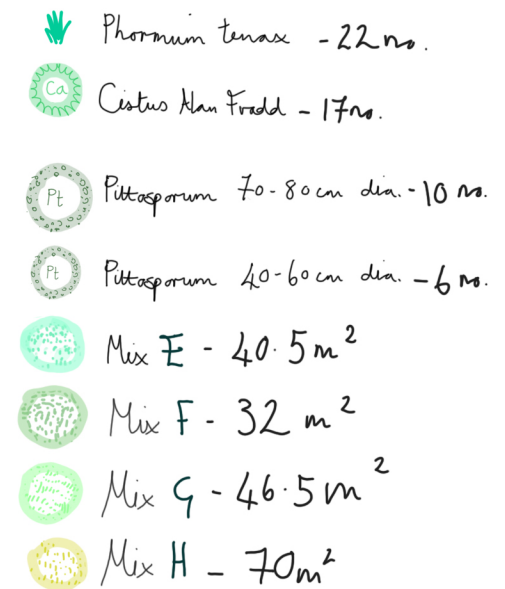 Phormium tenax - 22 no.
Ca Cistus Alan Fradd - 17 no.
Pt Pittosporum 70-80cm dia. - 10 no.
Pt Pittosporum 40-60cm dia. - 6 no.
Mix E - 40.5m²
Mix F - 32 m²
Mix G - 46.5m²
Mix H - 70m²